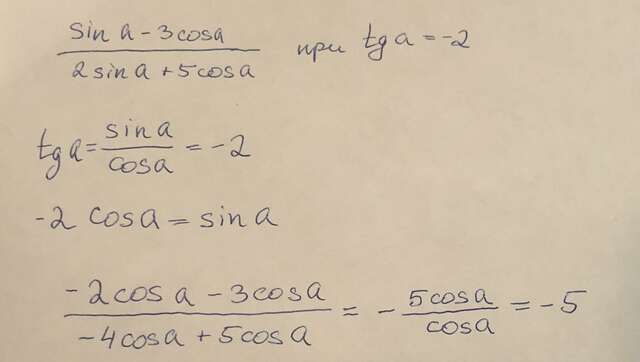 sin a - 3cosa / 2sina + 5cosa при tg a = -2
tg a = sin a / cosa = -2
-2 cos a = sin a
-2cos a - 3cosa / -4cosa + 5cosa = - 5cosa / cosa = -5